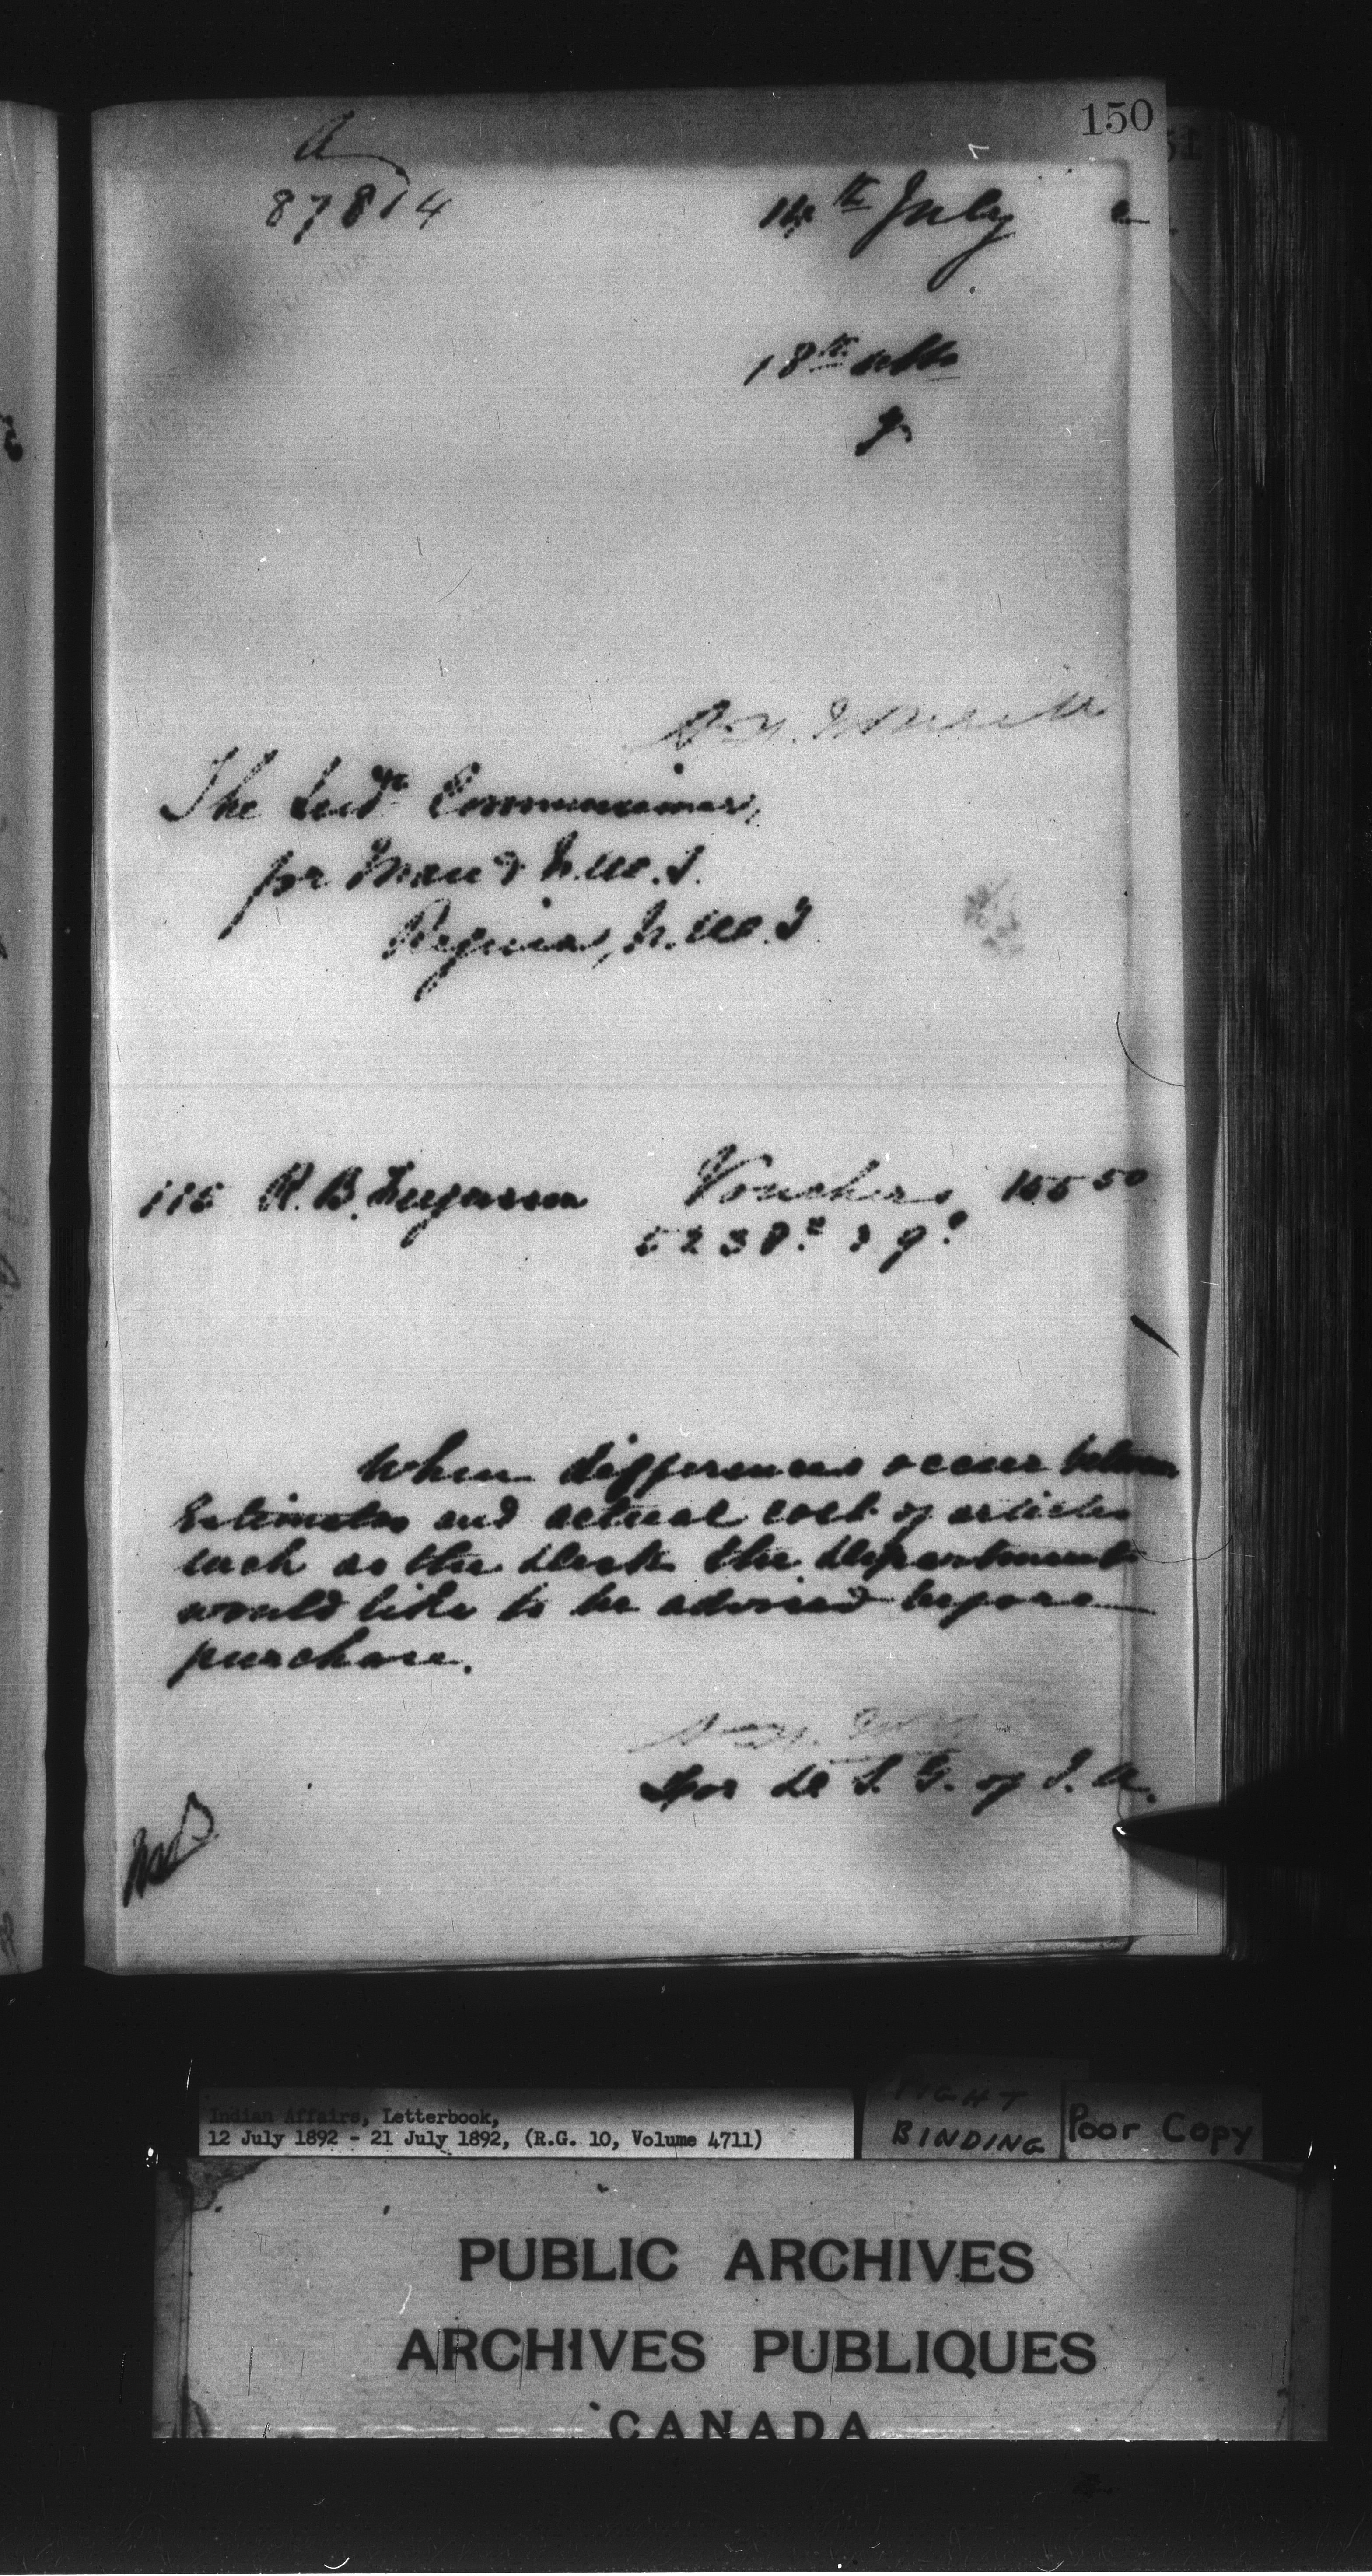 150
51
A
87814
14th July 2
18th ulto
The Indn Commissioner,
for Man & N.W.T.
Regina, N.W.T
115 R. B. Ferguson Vouchers 155 50
When differences occur between
Estimates and actual cost of articles
such as the desk the Department
would like to be advised before
purchase.
For D S. G. of I. A.
Indian Affairs, Letterbook,
12 July 1892 - 21 July 1892, (R.G. 10, Volume 4711)
TIGHT
BINDING
Poor Copy
PUBLIC ARCHIVES
ARCHIVES PUBLIQUES
CANADA